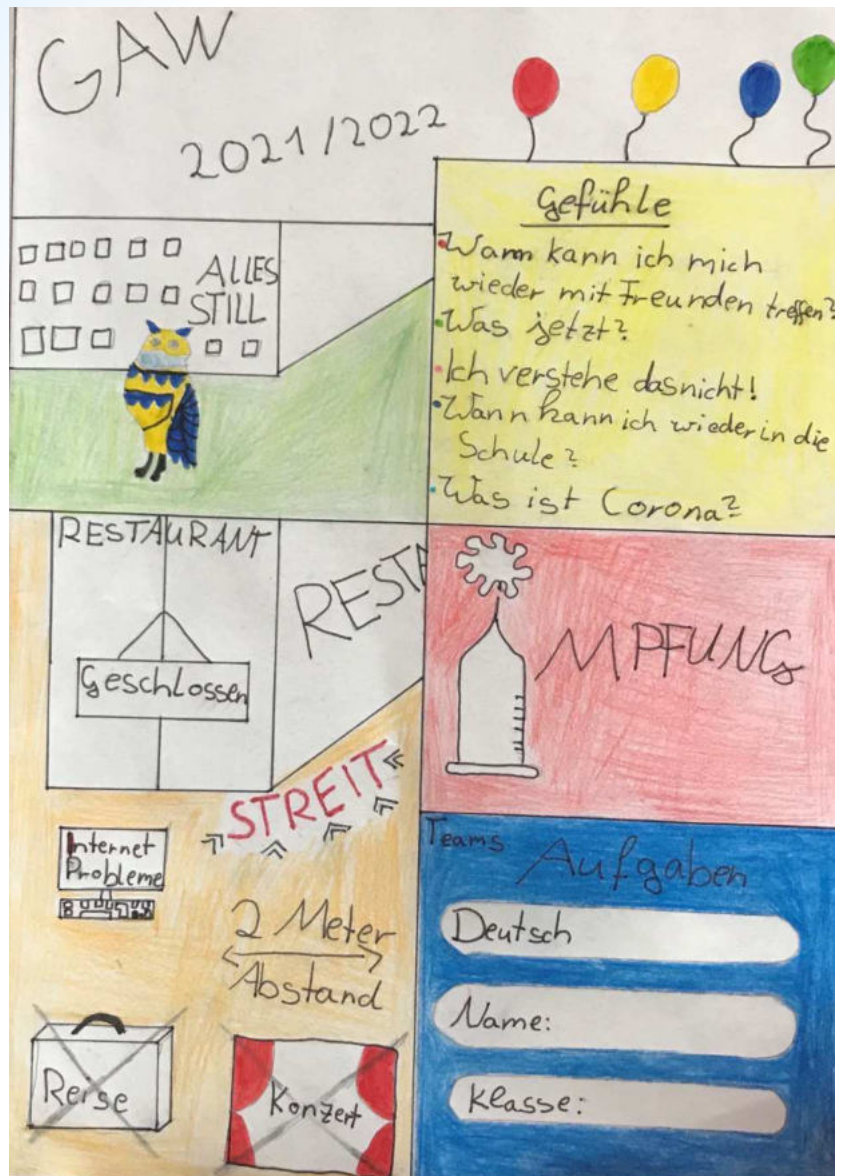 GAW
2021/2022
ALLES
STILL
Gefühle
Wann kann ich mich
wieder mit Freunden treffen?
Was jetzt?
Ich verstehe dasnicht!
Wann kann ich wieder in die
Schule?
Was ist Corona?
RESTAURANT
Geschlossen
RESTA
MPFUNG
STREIT
Internet
Probleme
2 Meter
Abstand
Reise
Konzert
Teams
Aufgaben
Deutsch
Name:
Klasse: